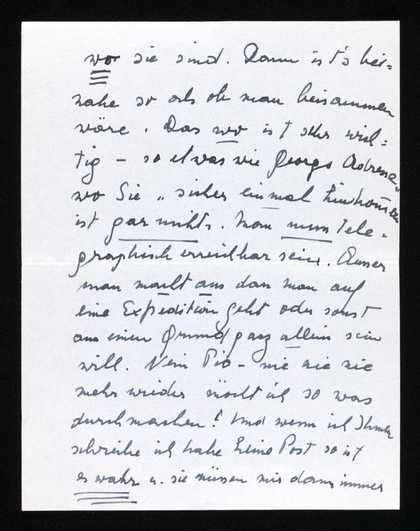 wo sie sind. Dann ist's bei=
nahe so als ob man beisammen
wäre. Das wo ist sehr wich=
tig – so etwas wie Georgs Adresse
wo Sie „sicher einmal hinkommen
ist gar nichts. Man muss tele=
graphisch erreichbar sein. Ausser
man macht aus dass man auf
eine Expedition geht oder sonst
aus einem Grund ganz allein sein
will. Nein Pio – nie nie nie
mehr wieder möcht ich so was
durchmachen! Und wenn ich Ihnen
schreibe ich habe keine Post so ist
es wahr u. sie müssen mir dann immer